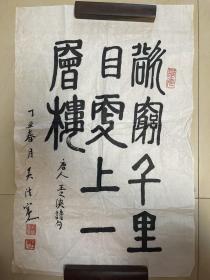 欲窮千里
目更上一
層樓
唐人王之渙詩句
丁丑春月吳法憲